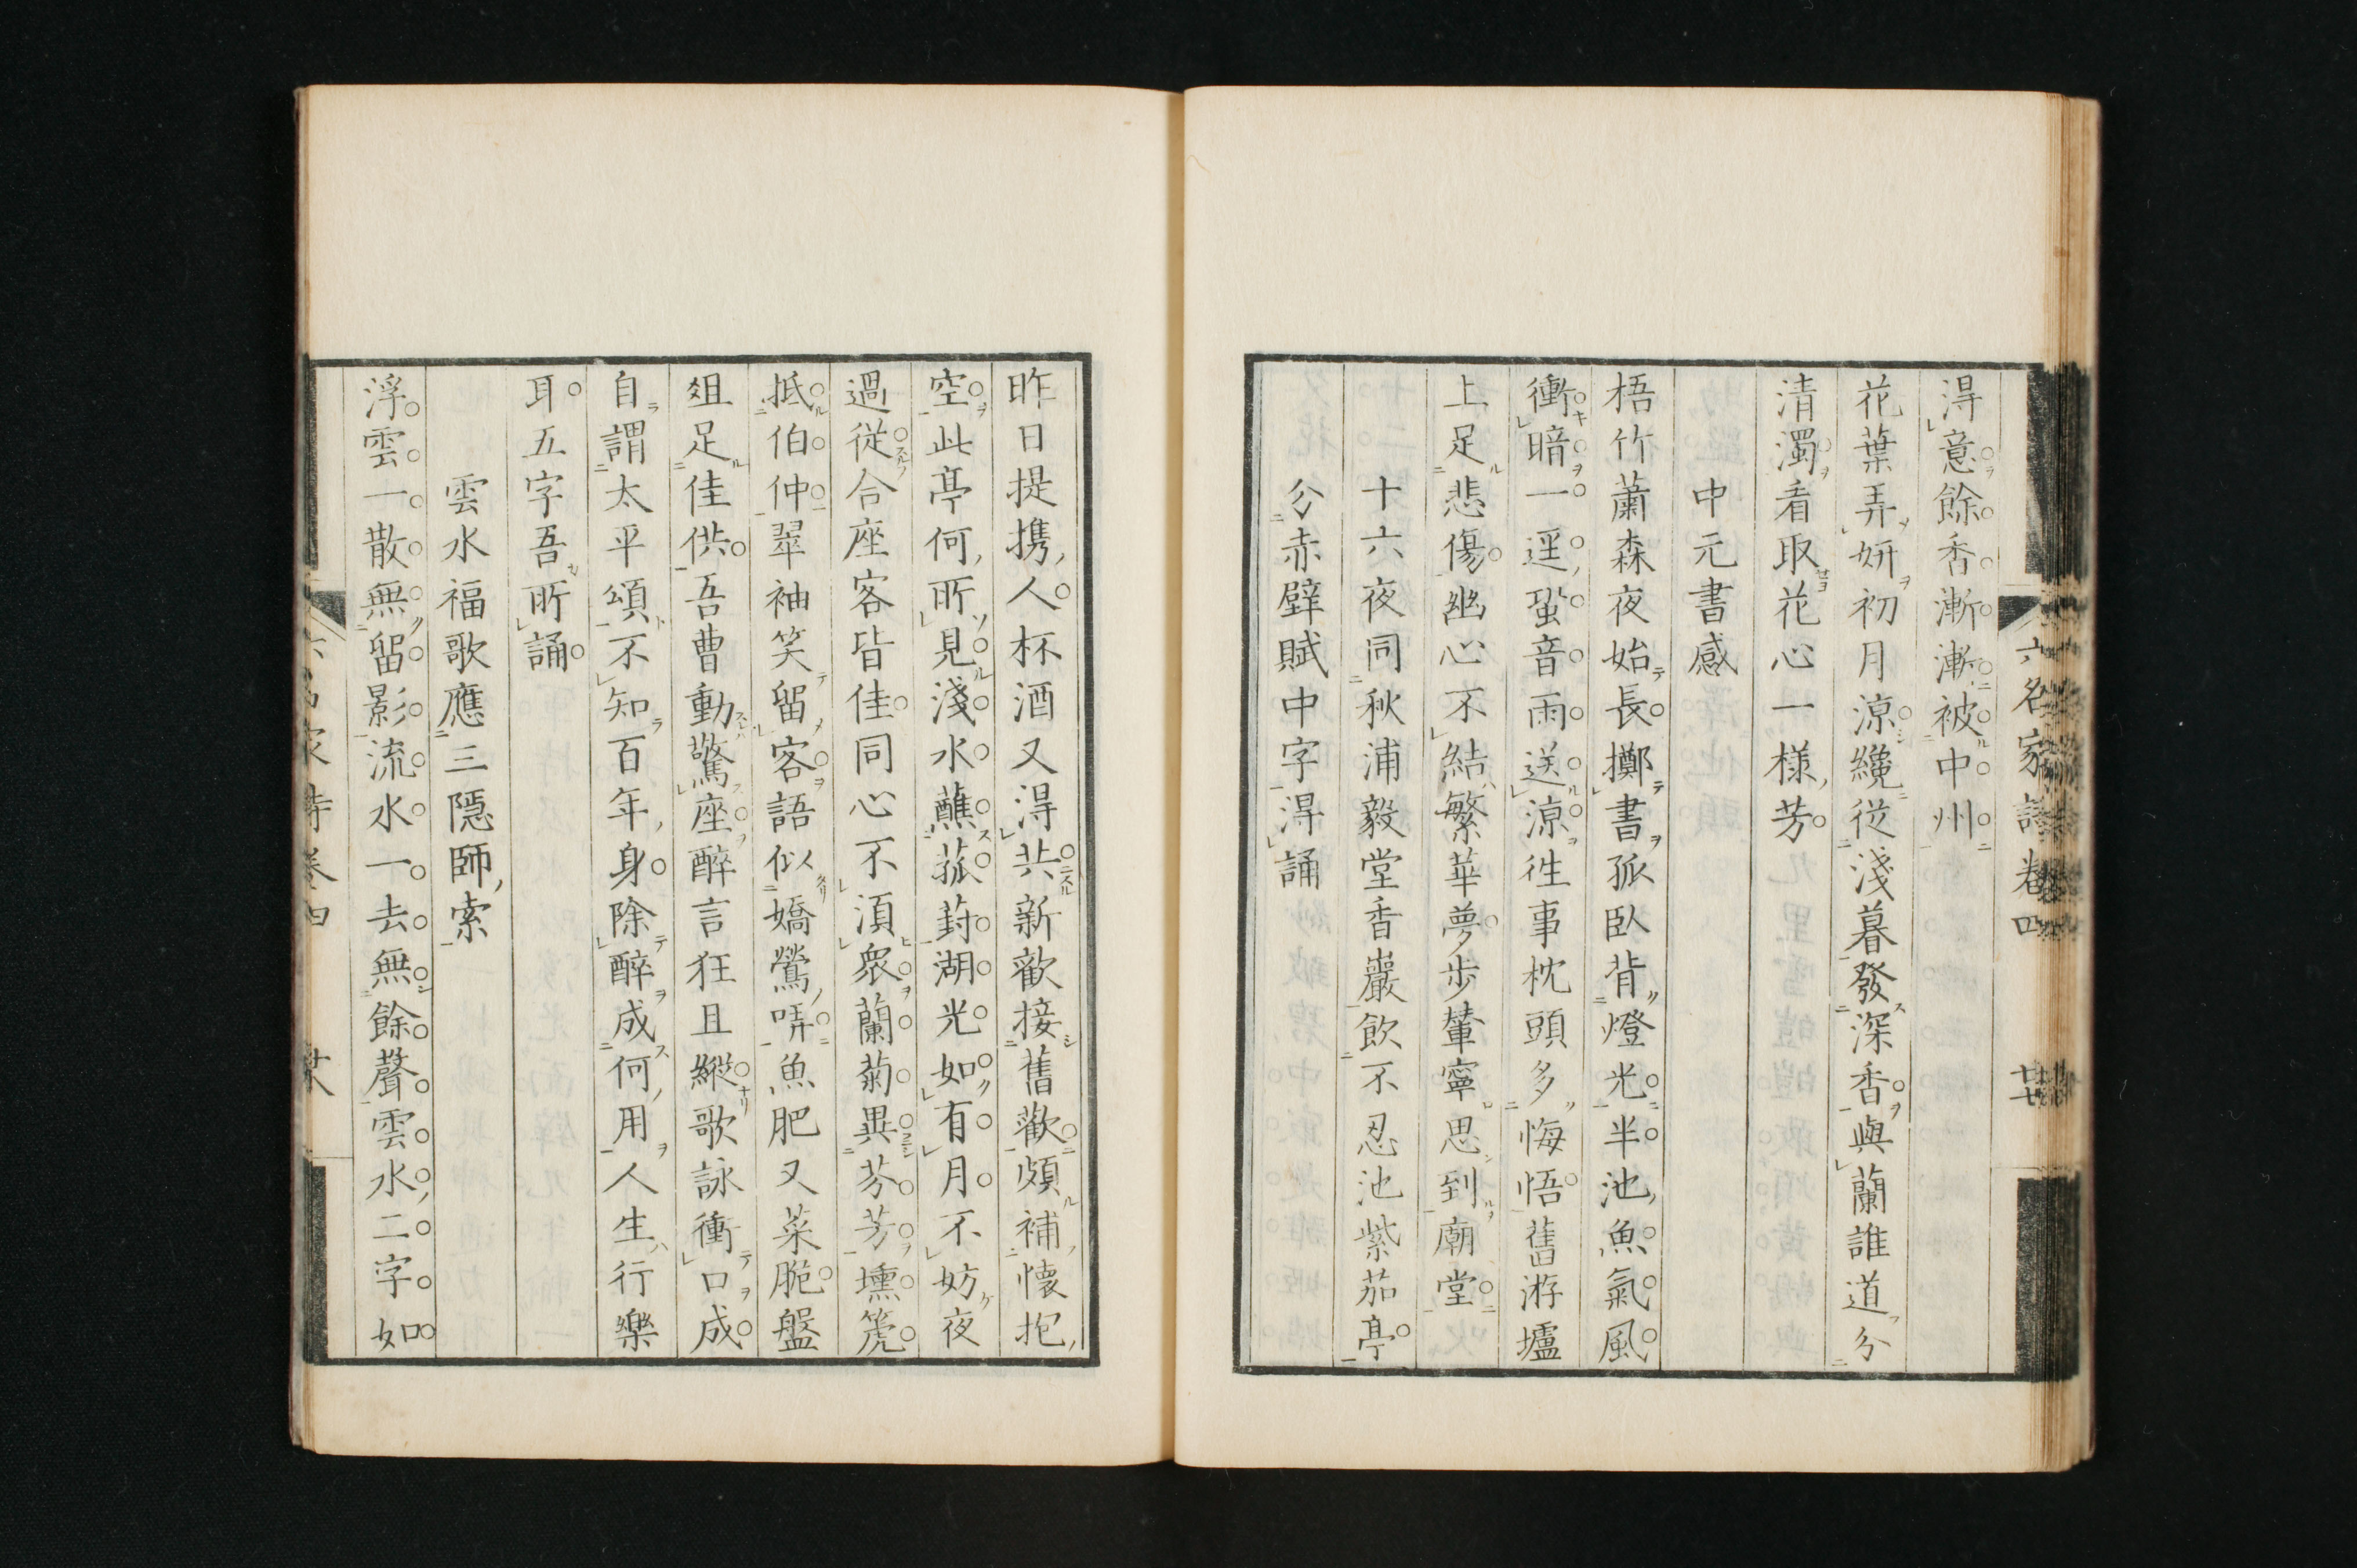 六名家詩卷四 廿七
得意餘香漸漸被中州
花葉弄妍初月涼纔從淺暮發深香與蘭誰道分
清濁看取花心一樣芳
中元書感
梧竹蕭森夜始長擲書孤臥背燈光半池魚氣風
衝暗一逕蛩音雨送涼徃事枕頭多悔悟舊游壚
上足悲傷幽心不結繁華夢步輦寧思到廟堂
十六夜同秋浦毅堂香巖飲不忍池紫茄亭
分赤壁賦中字得誦
昨日提携人杯酒又得共新歡接舊歡頗補懷抱
空此亭何所見淺水蘸菰葑湖光如有月不妨夜
過從合座客皆佳同心不須衆蘭菊異芬芳壎篪
抵伯仲翠袖笑留客語似嬌鶯哢魚肥又菜脆盤
俎足佳供吾曹動驚座醉言狂且縱歌詠衝口成
自謂太平頌不知百年身除醉成何用人生行樂
耳五字吾所誦
雲水福歌應三隱師索
浮雲一散無留影流水一去無餘聲雲水二字如